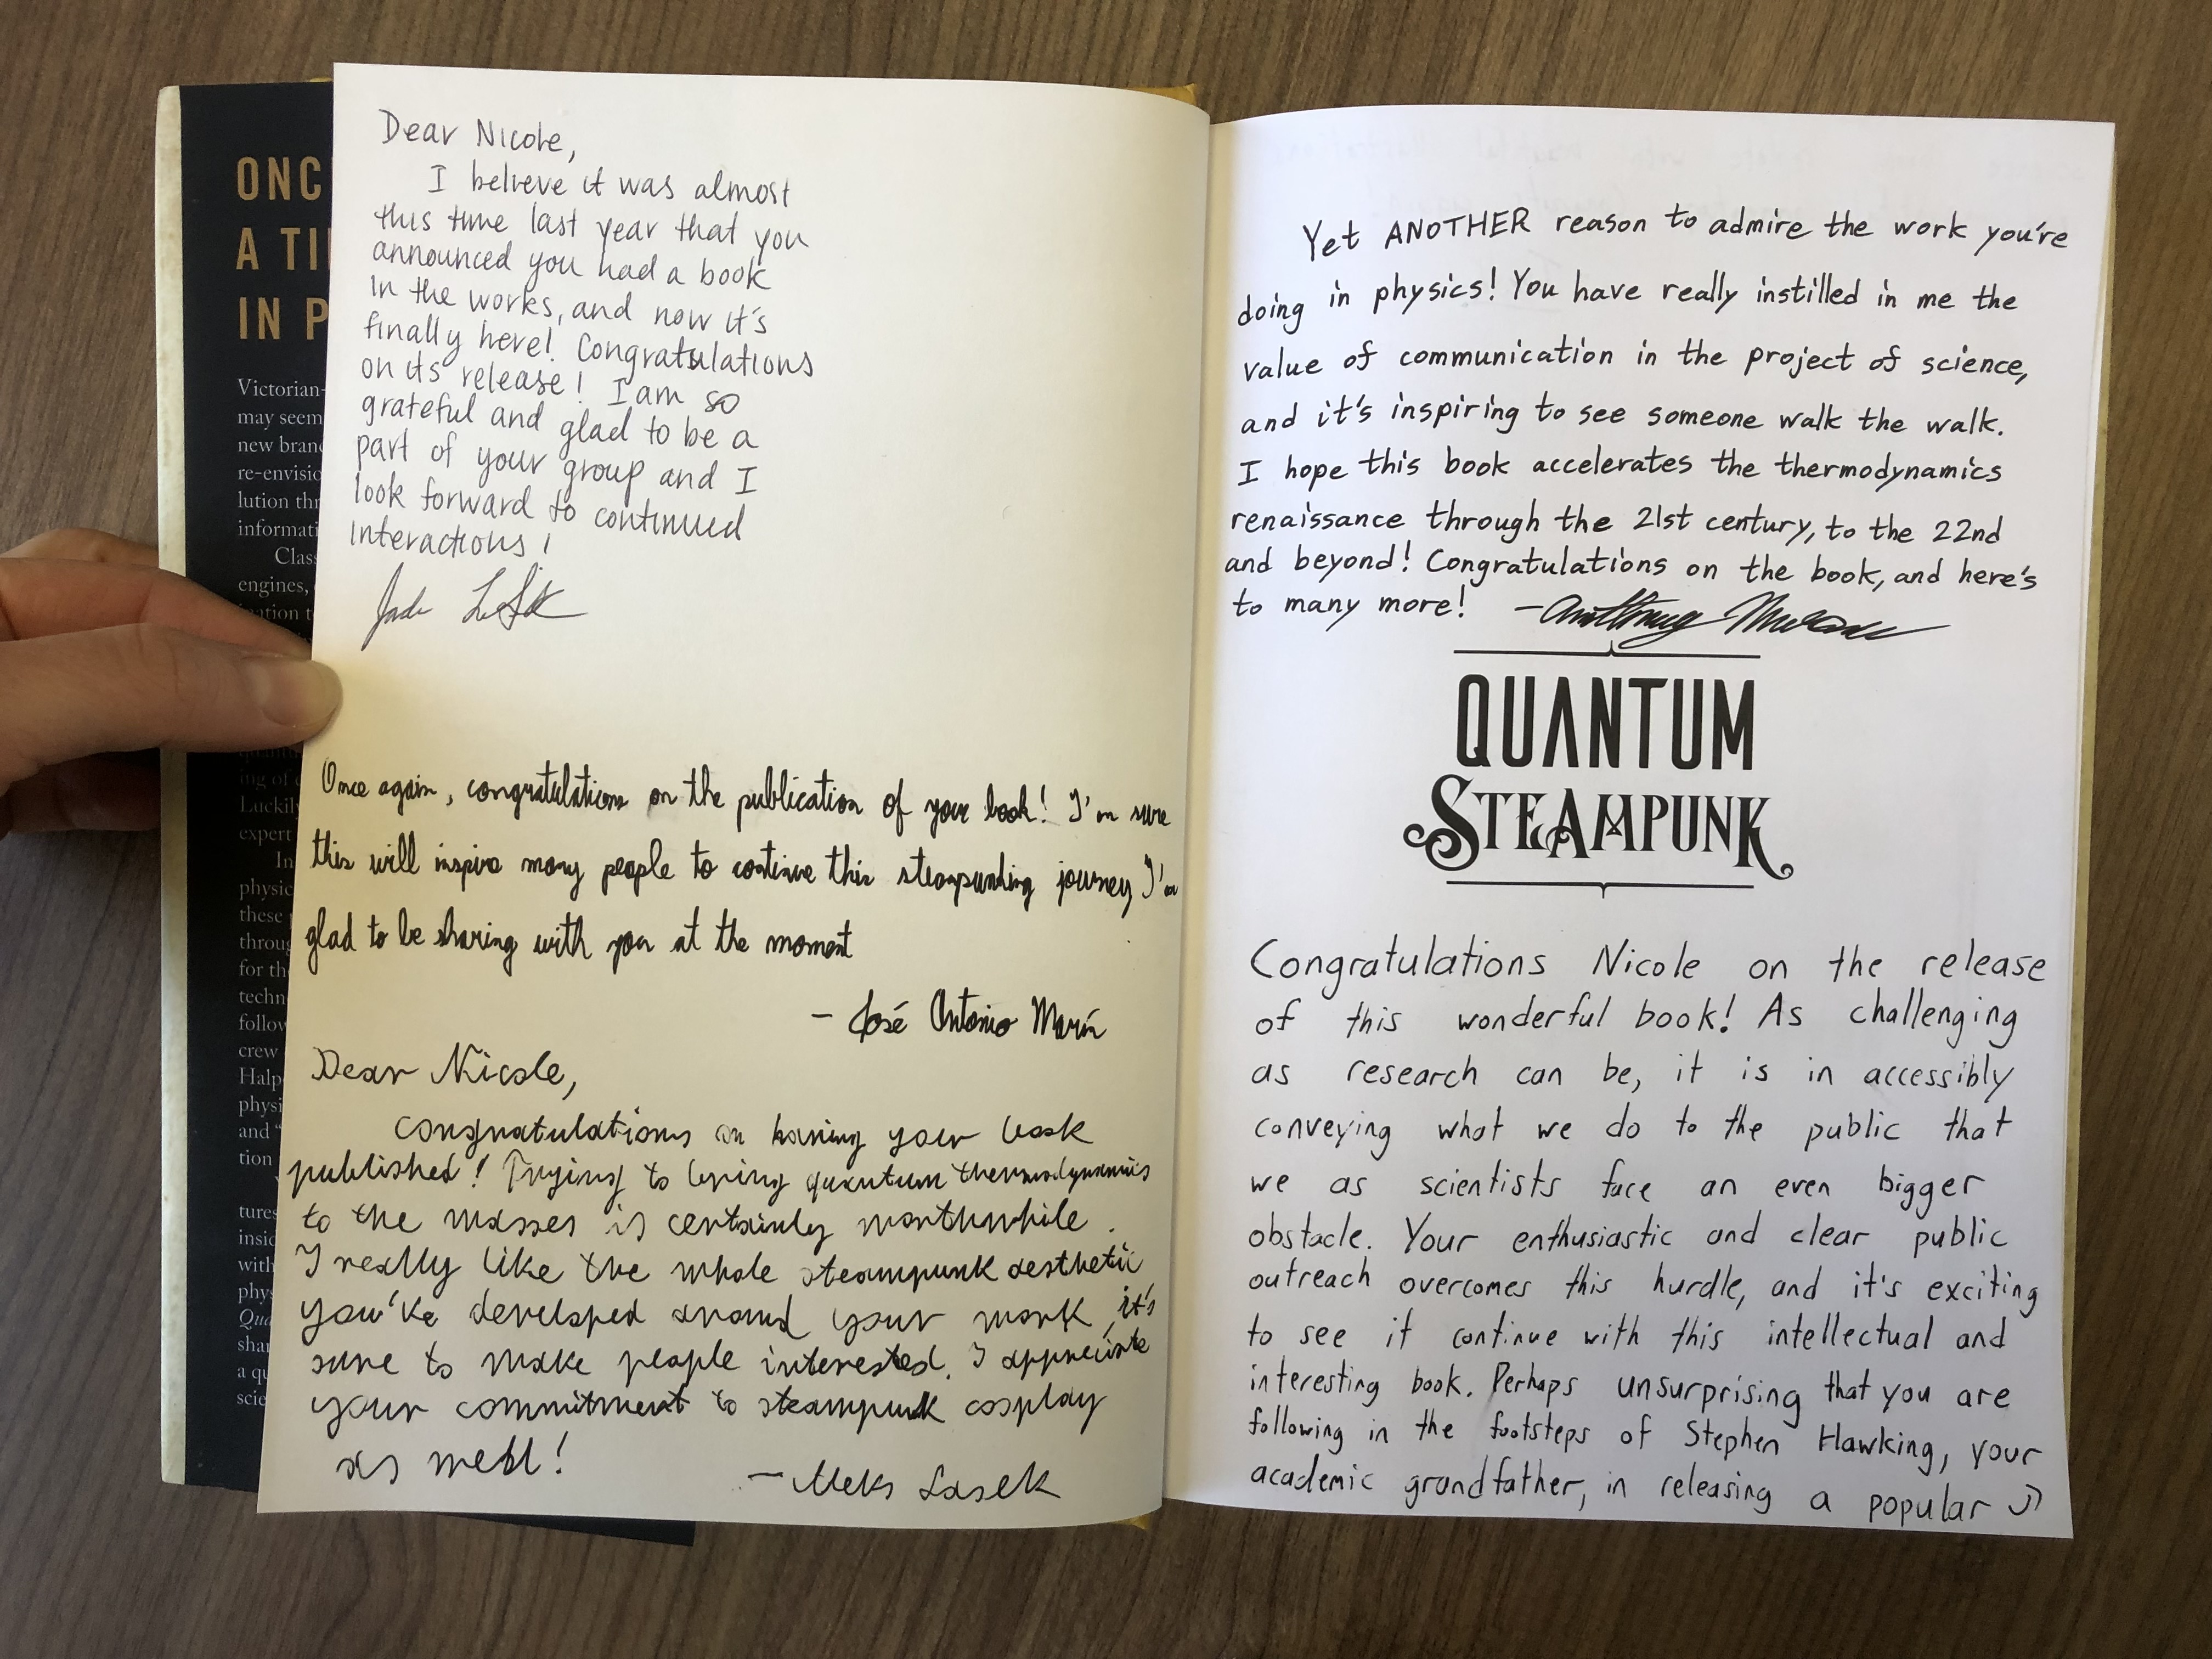 ONC
A TI
IN P
Victorian-
may seem
new bran
re-envisio
lution thr
informati
Clas
engines,
ination t
ing of
Luckily
expert
In
physic
these
throug
for th
techn
follow
crew
Halp
physi
and "
tion
tures
insid
with
phys
Qua
shar
a qu
scie
Dear Nicole,
I believe it was almost
this time last year that you
announced you had a book
in the works, and now it's
finally here! Congratulations
on its release! I am so
grateful and glad to be a
part of your group and I
look forward to continued
interactions!
Once again, congratulations on the publication of your book! I'm sure
this will inspire many people to continue this steampunking journey, I'm
glad to be sharing with you at the moment
- José Antonio Marín
Dear Nicole,
congratulations on having your book
published! Trying to bring quantum thermodynamics
to the masses is certainly worthwhile.
I really like the whole steampunk aesthetic
you've developed around your work, it's
sure to make people interested. I appreciate
your commitment to steampunk cosplay
as well!
- Aleks Lasek
Yet ANOTHER reason to admire the work you're
doing in physics! You have really instilled in me the
value of communication in the project of science,
and it's inspiring to see someone walk the walk.
I hope this book accelerates the thermodynamics
renaissance through the 21st century, to the 22nd
and beyond! Congratulations on the book, and here's
to many more! - Anthony
QUANTUM
STEAMPUNK
Congratulations Nicole on the release
of this wonderful book! As challenging
as research can be, it is in accessibly
conveying what we do to the public that
we as scientists face an even bigger
obstacle. Your enthusiastic and clear public
outreach overcomes this hurdle, and it's exciting
to see it continue with this intellectual and
interesting book. Perhaps unsurprising that you are
following in the footsteps of Stephen Hawking, your
academic grandfather, in releasing a popular